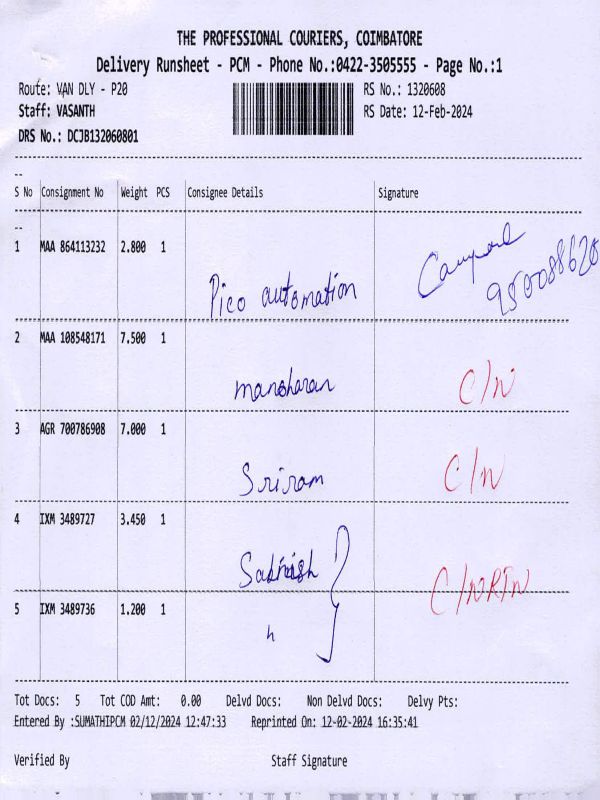 THE PROFESSIONAL COURIERS, COIMBATORE
Delivery Runsheet - PCM - Phone No.:0422-3505555 - Page No.:1
Route: VAN DLY - P20 RS No.: 1320608
Staff: VASANTH RS Date: 12-Feb-2024
DRS No.: DCJB132060801
S No Consignment No Weight PCS Consignee Details Signature
1 MAA 864113232 2.800 1
Pico automation 950088620
2 MAA 108548171 7.500 1
manoharan C/N
3 AGR 700786908 7.000 1
Sriram C/N
4 IXM 3489727 3.450 1
C/NRTN
5 IXM 3489736 1.200 1
Tot Docs: 5 Tot COD Amt: 0.00 Delvd Docs: Non Delvd Docs: Delvy Pts:
Entered By :SUMATHIPCM 02/12/2024 12:47:33 Reprinted On: 12-02-2024 16:35:41
Verified By Staff Signature